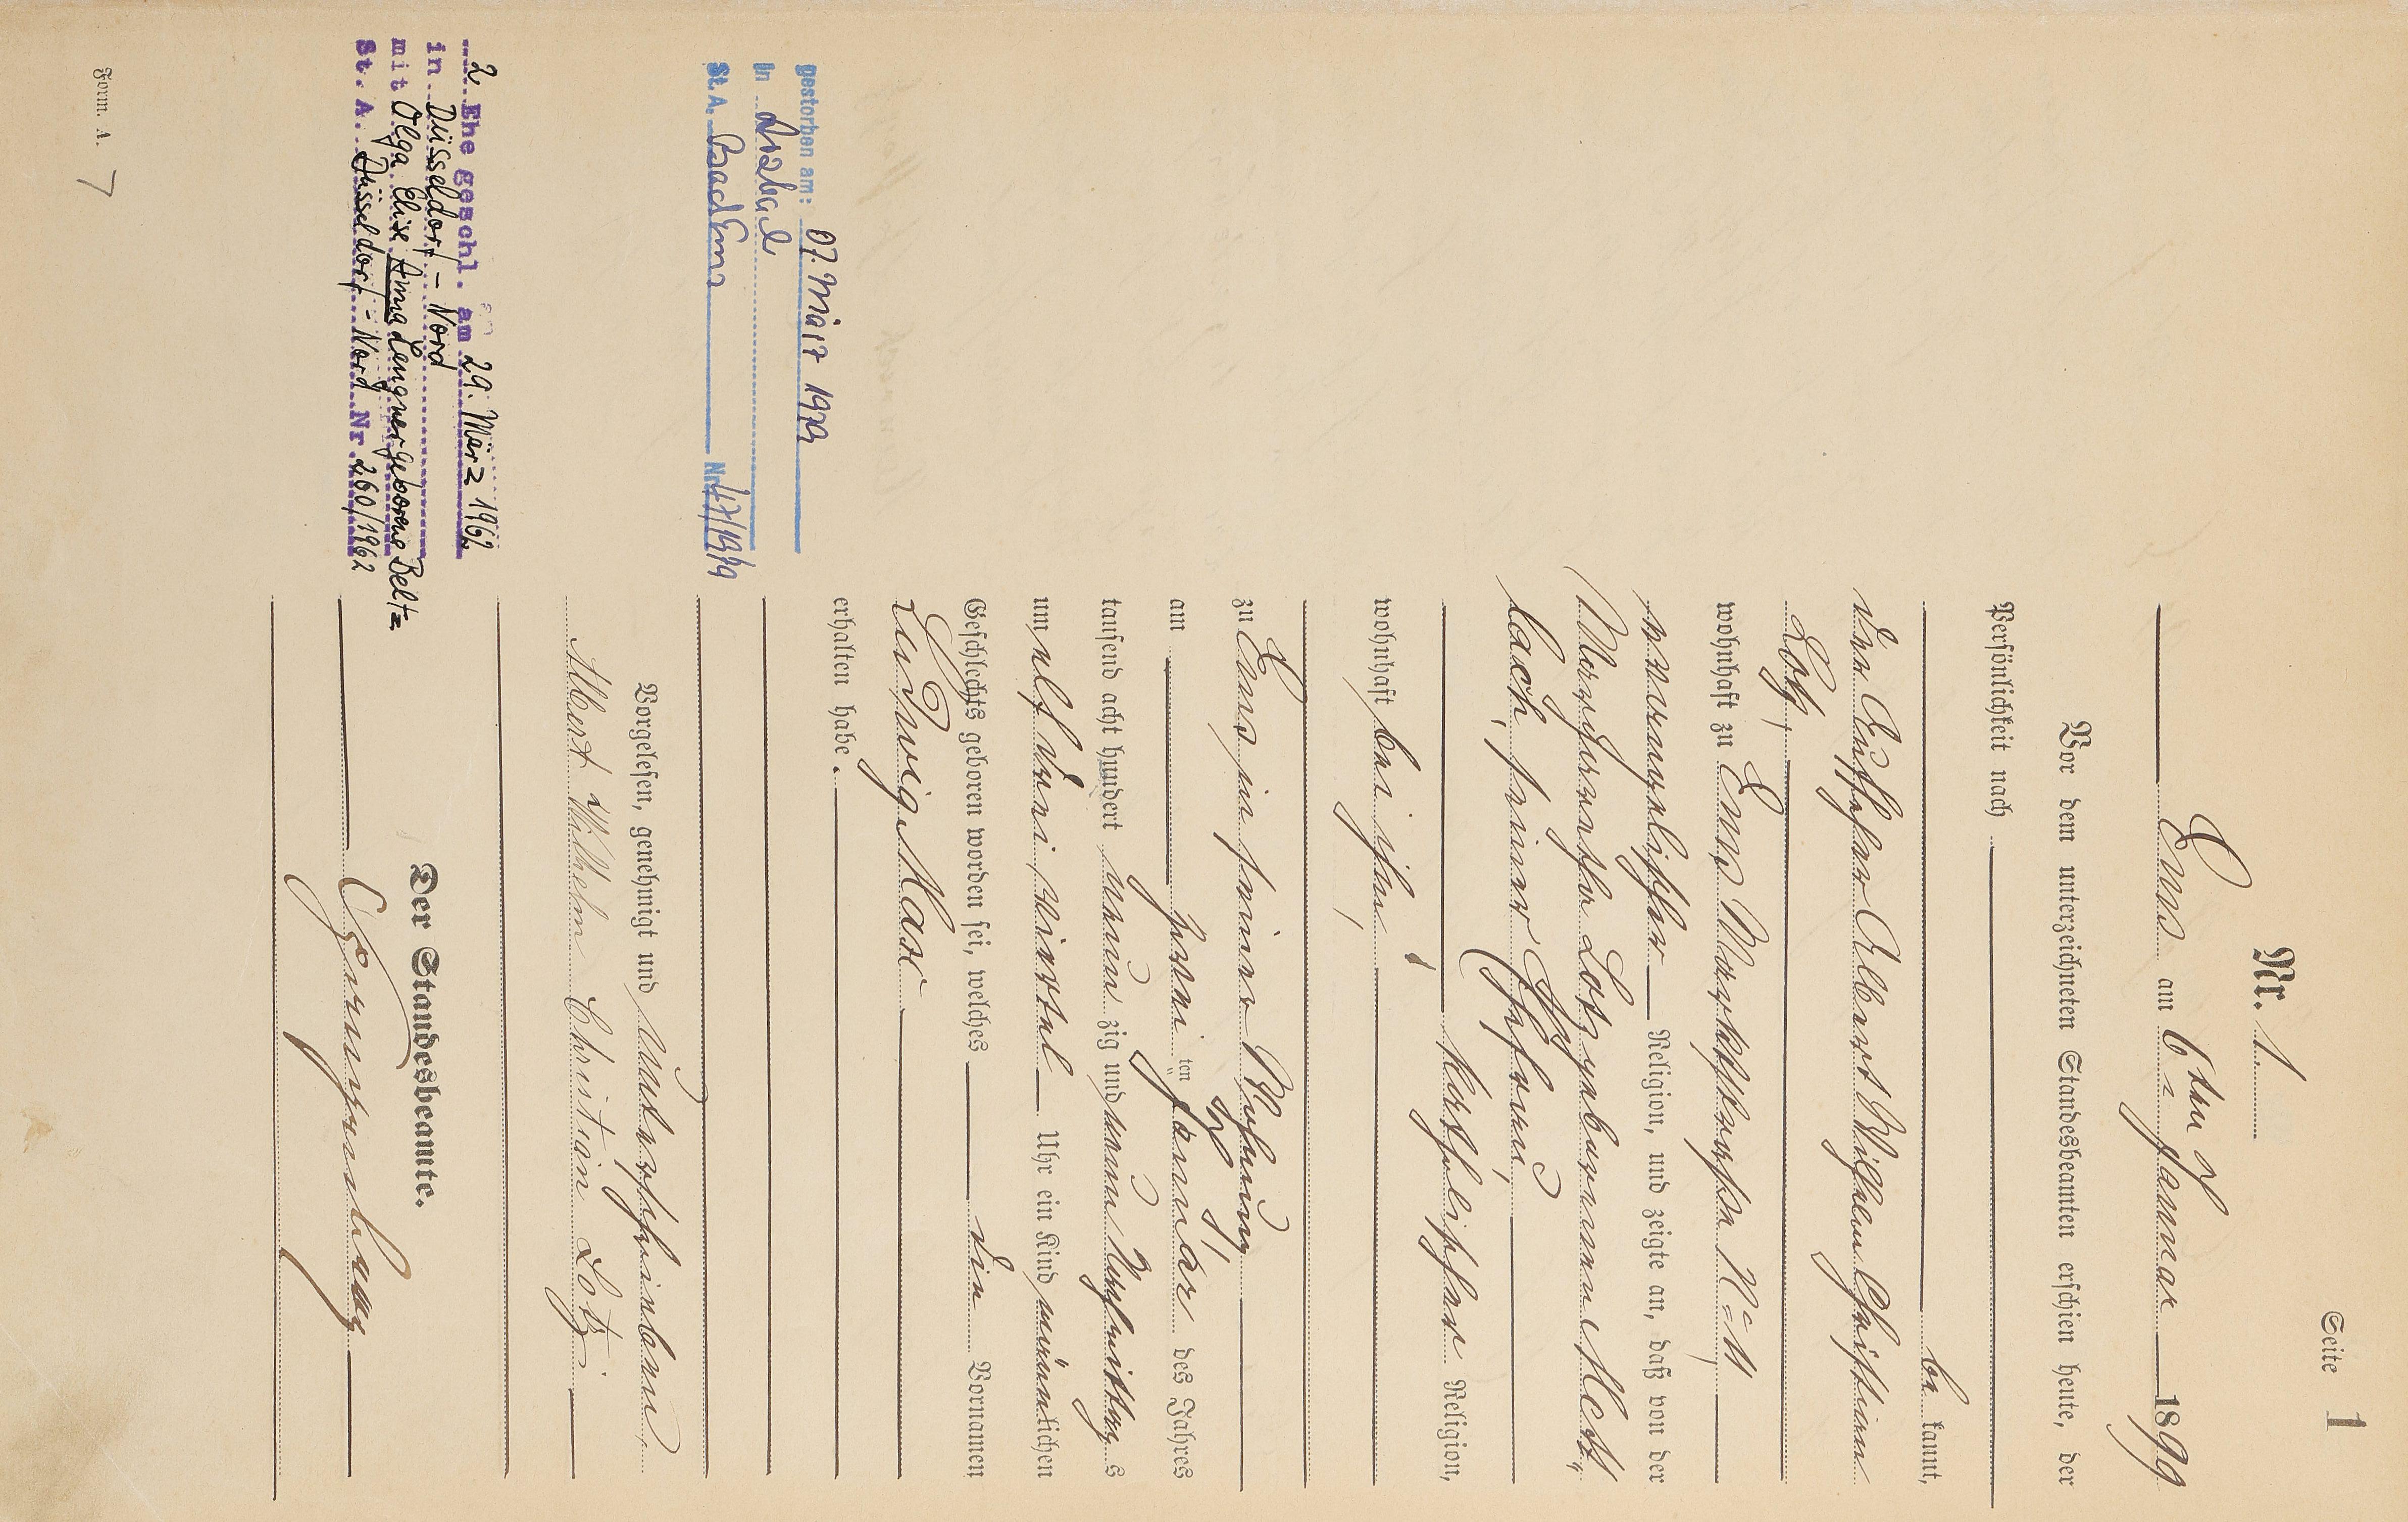 Seite 1
Nr. 1.
Ems am 6ten Januar 1899
Vor dem unterzeichneten Standesbeamten erschien heute, der
Persönlichkeit nach
be kannt,
der Albert Wilhelm Christian
Lotz,
wohnhaft zu Ems Marktstraße No 11,
evangelischer Religion, und zeigte an, daß von der
Margaretha Lotz geborenen Mett„
lach, seiner Ehefrau,
katholischer Religion,
wohnhaft bei ihm,
zu Ems in seiner Wohnung
am zwei ten Januar des Jahres
tausend acht hundert neun zig und neun Nachmittag s
um elf drei Viertel Uhr ein Kind männ lichen
Geschlechts geboren worden sei, welches die Vornamen
Ludwig Max
erhalten habe.
Vorgelesen, genehmigt und unterschrieben
Albert Wilhelm Christian Lotz.
Der Standesbeamte.
gestorben am: 07. März 1979
in
St. A. Bad Ems Nr. 47/1979
2. Ehe geschl. am 29. März 1962
in Düsseldorf-Nord
mit Olga Elise Anna Langner geborene Beltz
St. A. Düsseldorf-Nord Nr. 260/1962
Form. A. 7